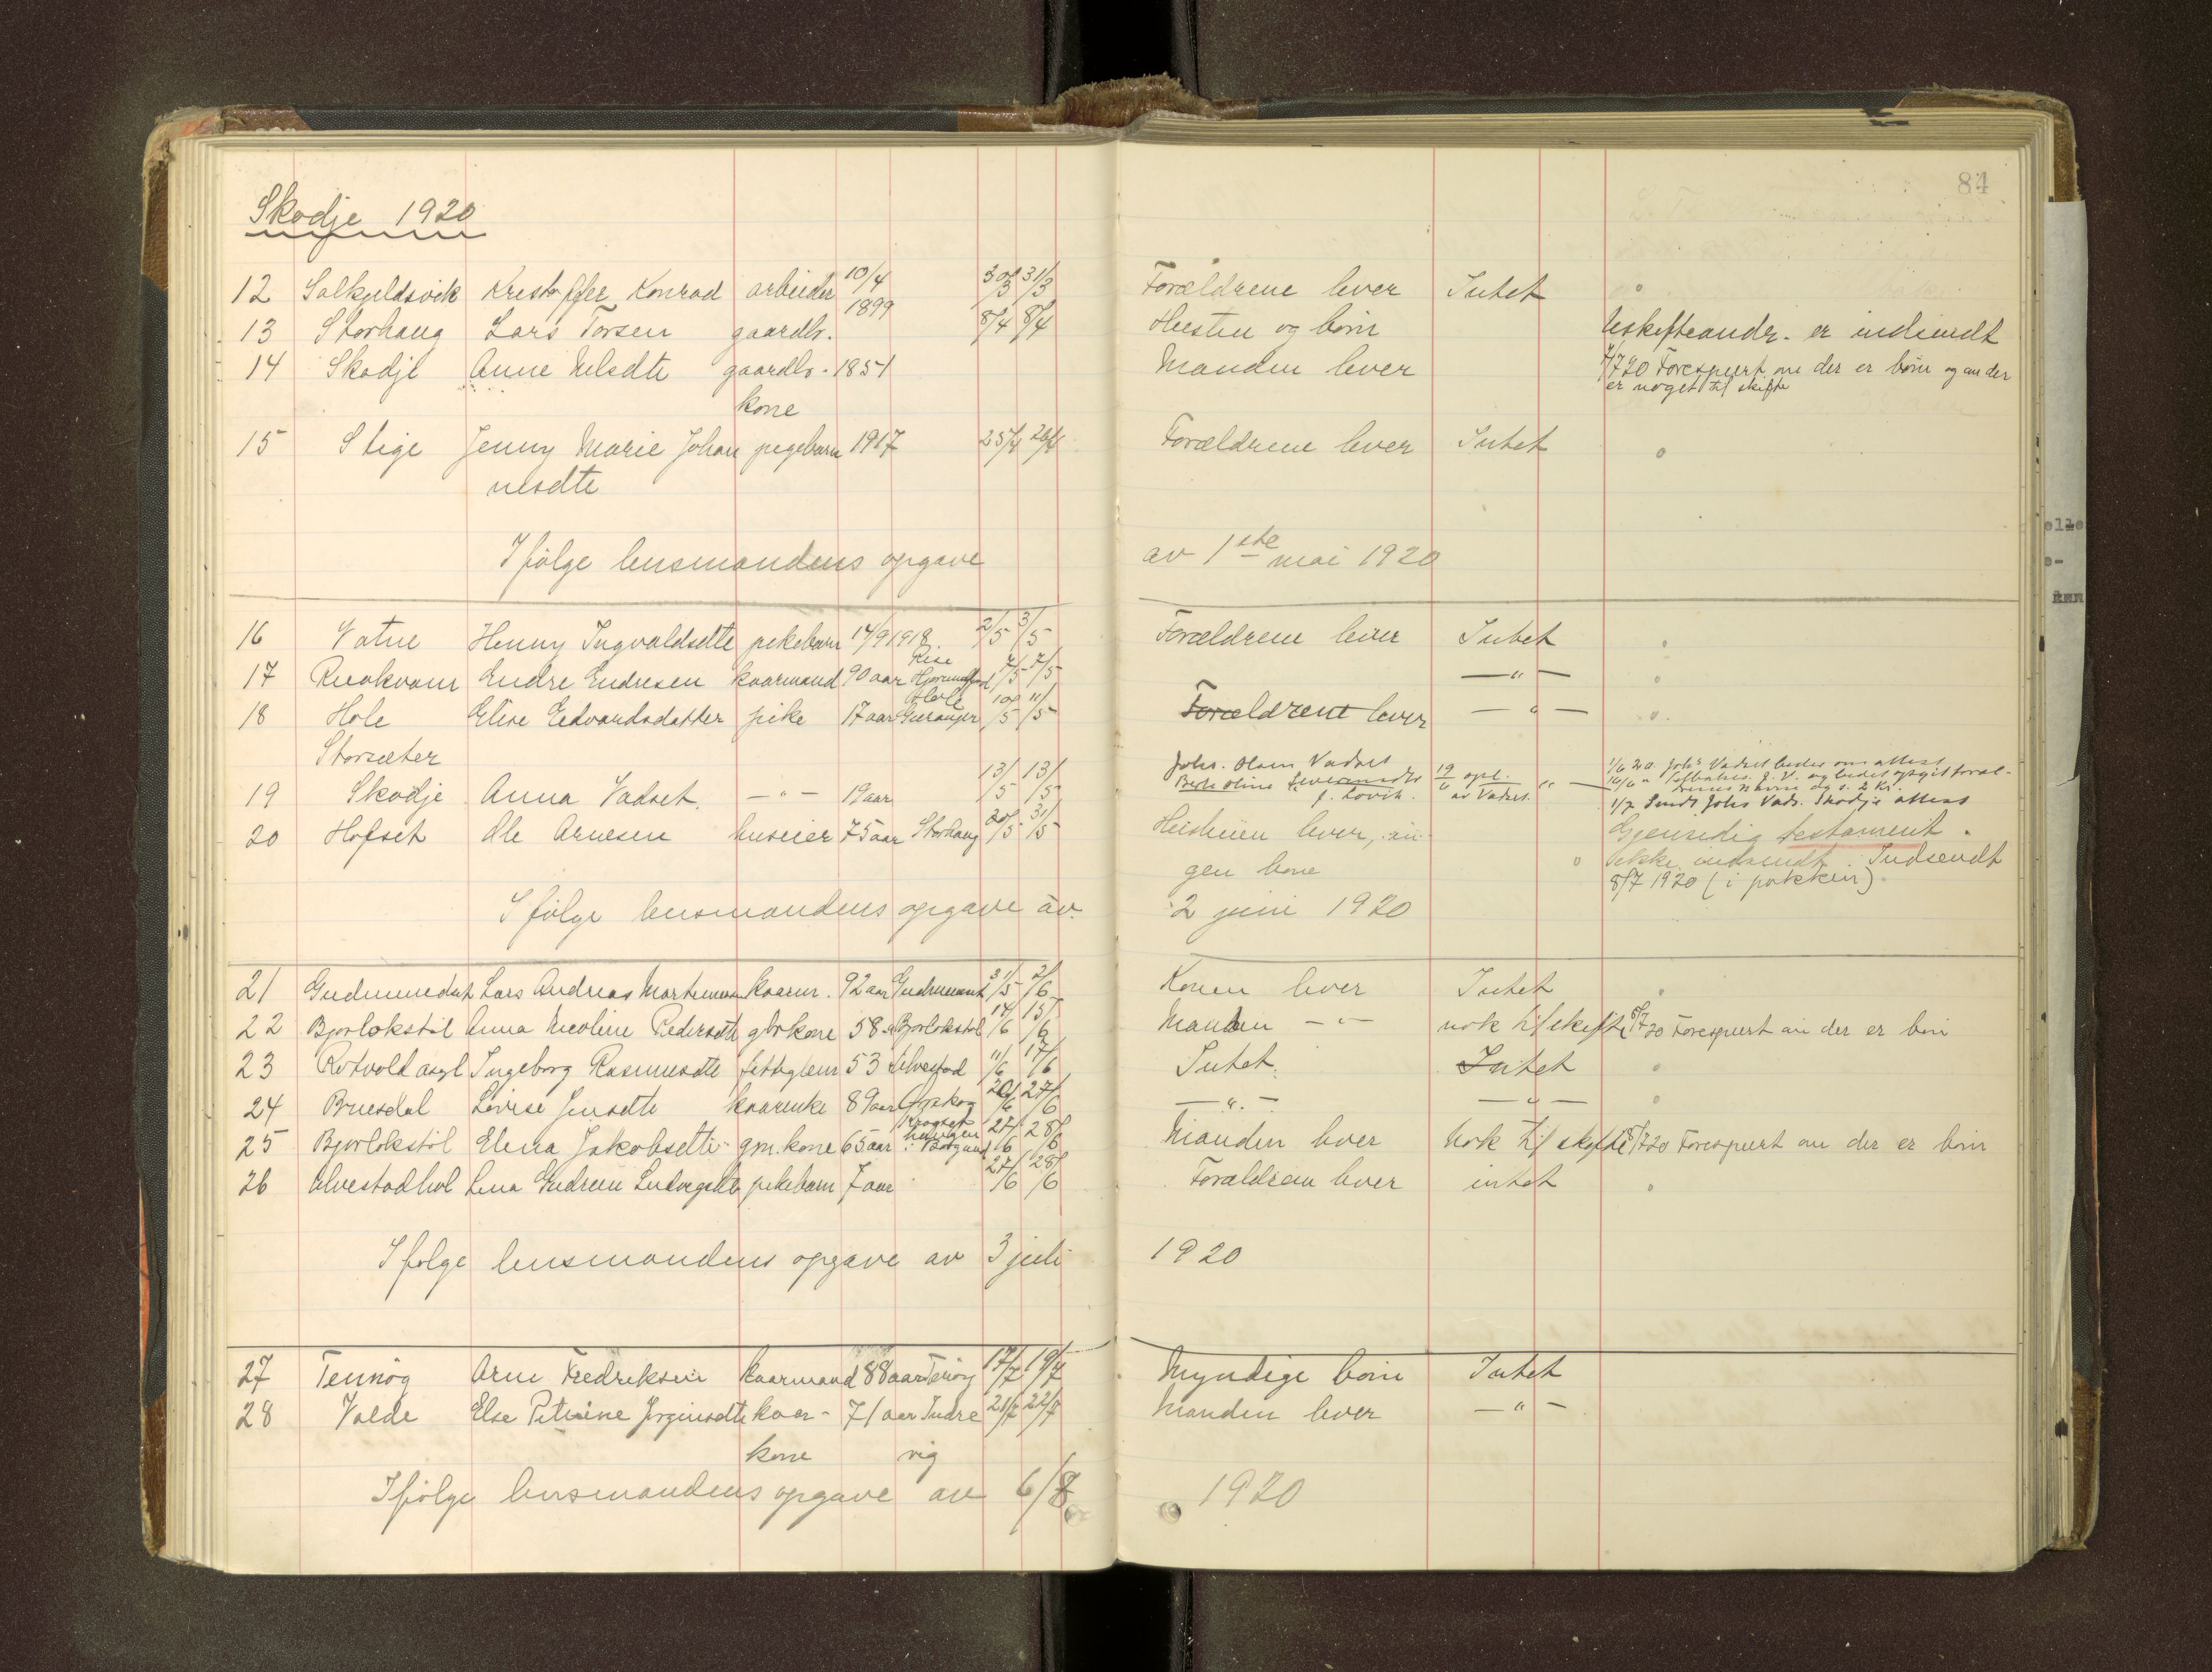 84
Skodje 1920
12 Solkjeldsvik Kristoffer Konrad arbeider 10/4 1899 30/3 31/3 Forældrene lever Intet
13 Storhaug Lars Torsen gaardbr. 8/4 8/4 Hustru og børn Uskifteandr. er indsendt
14 Skodje Anne Nelsdte gaardbr. 1851 Manden lever 7/7 20 Forespurt om der er børn og om der
kone er noget til skifte
15 Stige Jenny Marie Johan pigebarn 1917 25/4 26/4 Forældrene lever Intet
nesdte
Ifølge lensmandens opgave av 1ste mai 1920
16 Vatne Henny Ingvaldsdte pikebarn 14/9 1918 2/5 3/5 Forældrene lever Intet
17 Endre Endresen kaarmand 90 aar Rise Hjørundfjord 7/5 7/5 — " —
18 Hole Elise Edvardsdatter pike 17 aar Hole Geiranger 10/5 11/5 Forældrene lever — " —
Storsæter
19 Skodje Anna Vadset. — " — 19 aar 13/5 13/5 Johs. Olsen Vadset
Berte Oline f. Lovik. 19/6 opl. av Vadset. " — 1/6 20. Johs Vadset bedes om attest
1/7 Sendt Johs Vads. Skodje attest
20 Hofset Ole Arnesen huseier 75 aar Storhaug 20/5 31/5 Hustruen lever, in- Gjensidig testament.
gen børn Ikke indsendt. Indsendt
8/7 1920 (i pakken).
Ifølge lensmandens opgave av 2 juni 1920
21 Gudmundset Lars Andreas Martinusen kaarm. 92 aar Gudmunset 31/5 2/6 Konen lever Intet
22 Bjørlokstøl Anna Nicoline Pedersdte gbrkone 58 " Bjørlokstøl 14/6 15/6 Manden — " — nok til skifte 8/7 20 Forespurt om der er børn
23 Rotvold asyl Ingeborg Rasmusdte fattiglem 53 Ulvestad 11/6 17/6 Intet. Intet
24 Bruesdal Lovise Jensdte kaarenke 89 aar Ørskog 20/6 27/6 — " — — " —
25 Bjørlokstøl Elena Jakobsdtte gm. kone 65 aar i Borgund 27/6 28/6 Manden lever Nok til skifte 8/7 20 Forespurt om der er børn
26 Ulvestadhol Lina Gudrun Ludvigsdte pikebarn 7 aar 27/6 28/6 Forældren lever intet
Ifølge lensmandens opgave av 3 juli 1920
27 Tennøy Arne Fredriksen kaarmand 88 aar Tenøy 17/7 19/7 Myndige børn Intet
28 Valde Else Petrine Jørginsdte kaar- 71 aar Indre 21/7 22/7 Manden lever — " —
kone vig
Ifølge lensmandens opgave av 6/8 1920